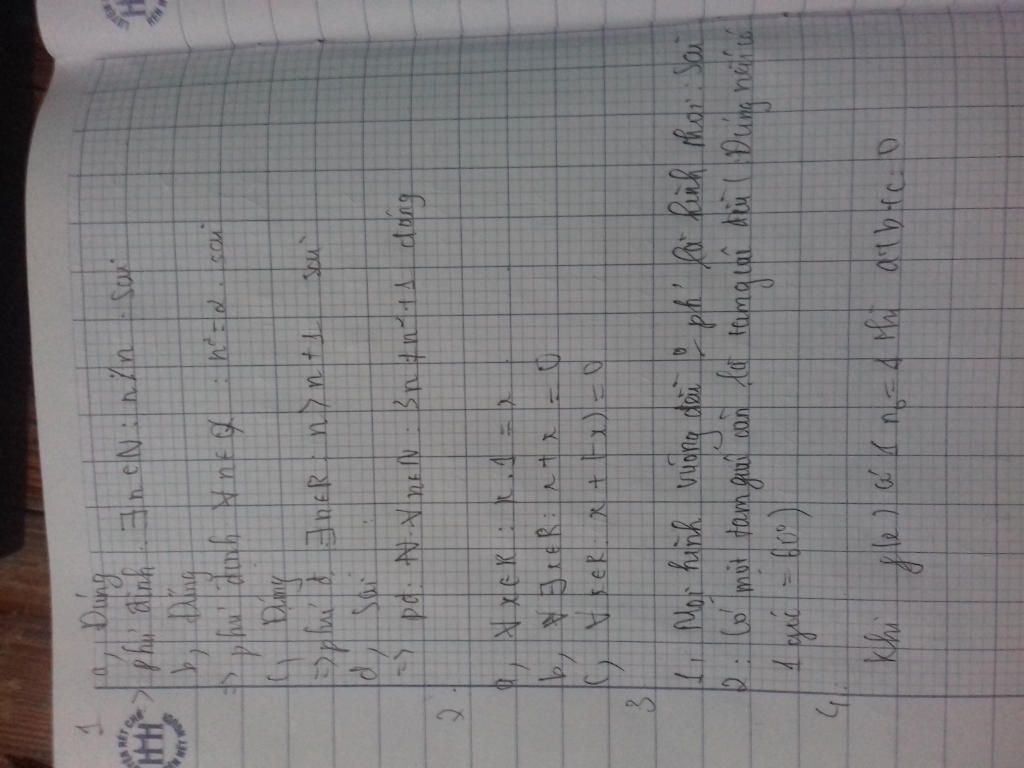 1
a, Đúng
=> phủ định: ∃n∈N: n⋮̸n. sai
b, Đúng
=> phủ định ∀n∈Q: n²=2. sai
c, Đúng
=> phủ đ. ∃n∈R: n > n+1 sai
d, Sai
=> pđ: ∀x∈N: 3n ≠ n²+1 đúng
2.
a, ∀x∈R: x.1 = x
b, ∃x∈R: x+x = 0
c, ∀x∈R: x+(-x) = 0
3
1, Mọi hình vuông đều ph' là hình thoi: sai
2: Có một tam giác cân là tam giác đều (Đúng nếu có
1 góc = 60°)
4.
Khi có 1 = 1 thì a+b+c=0
HẾT